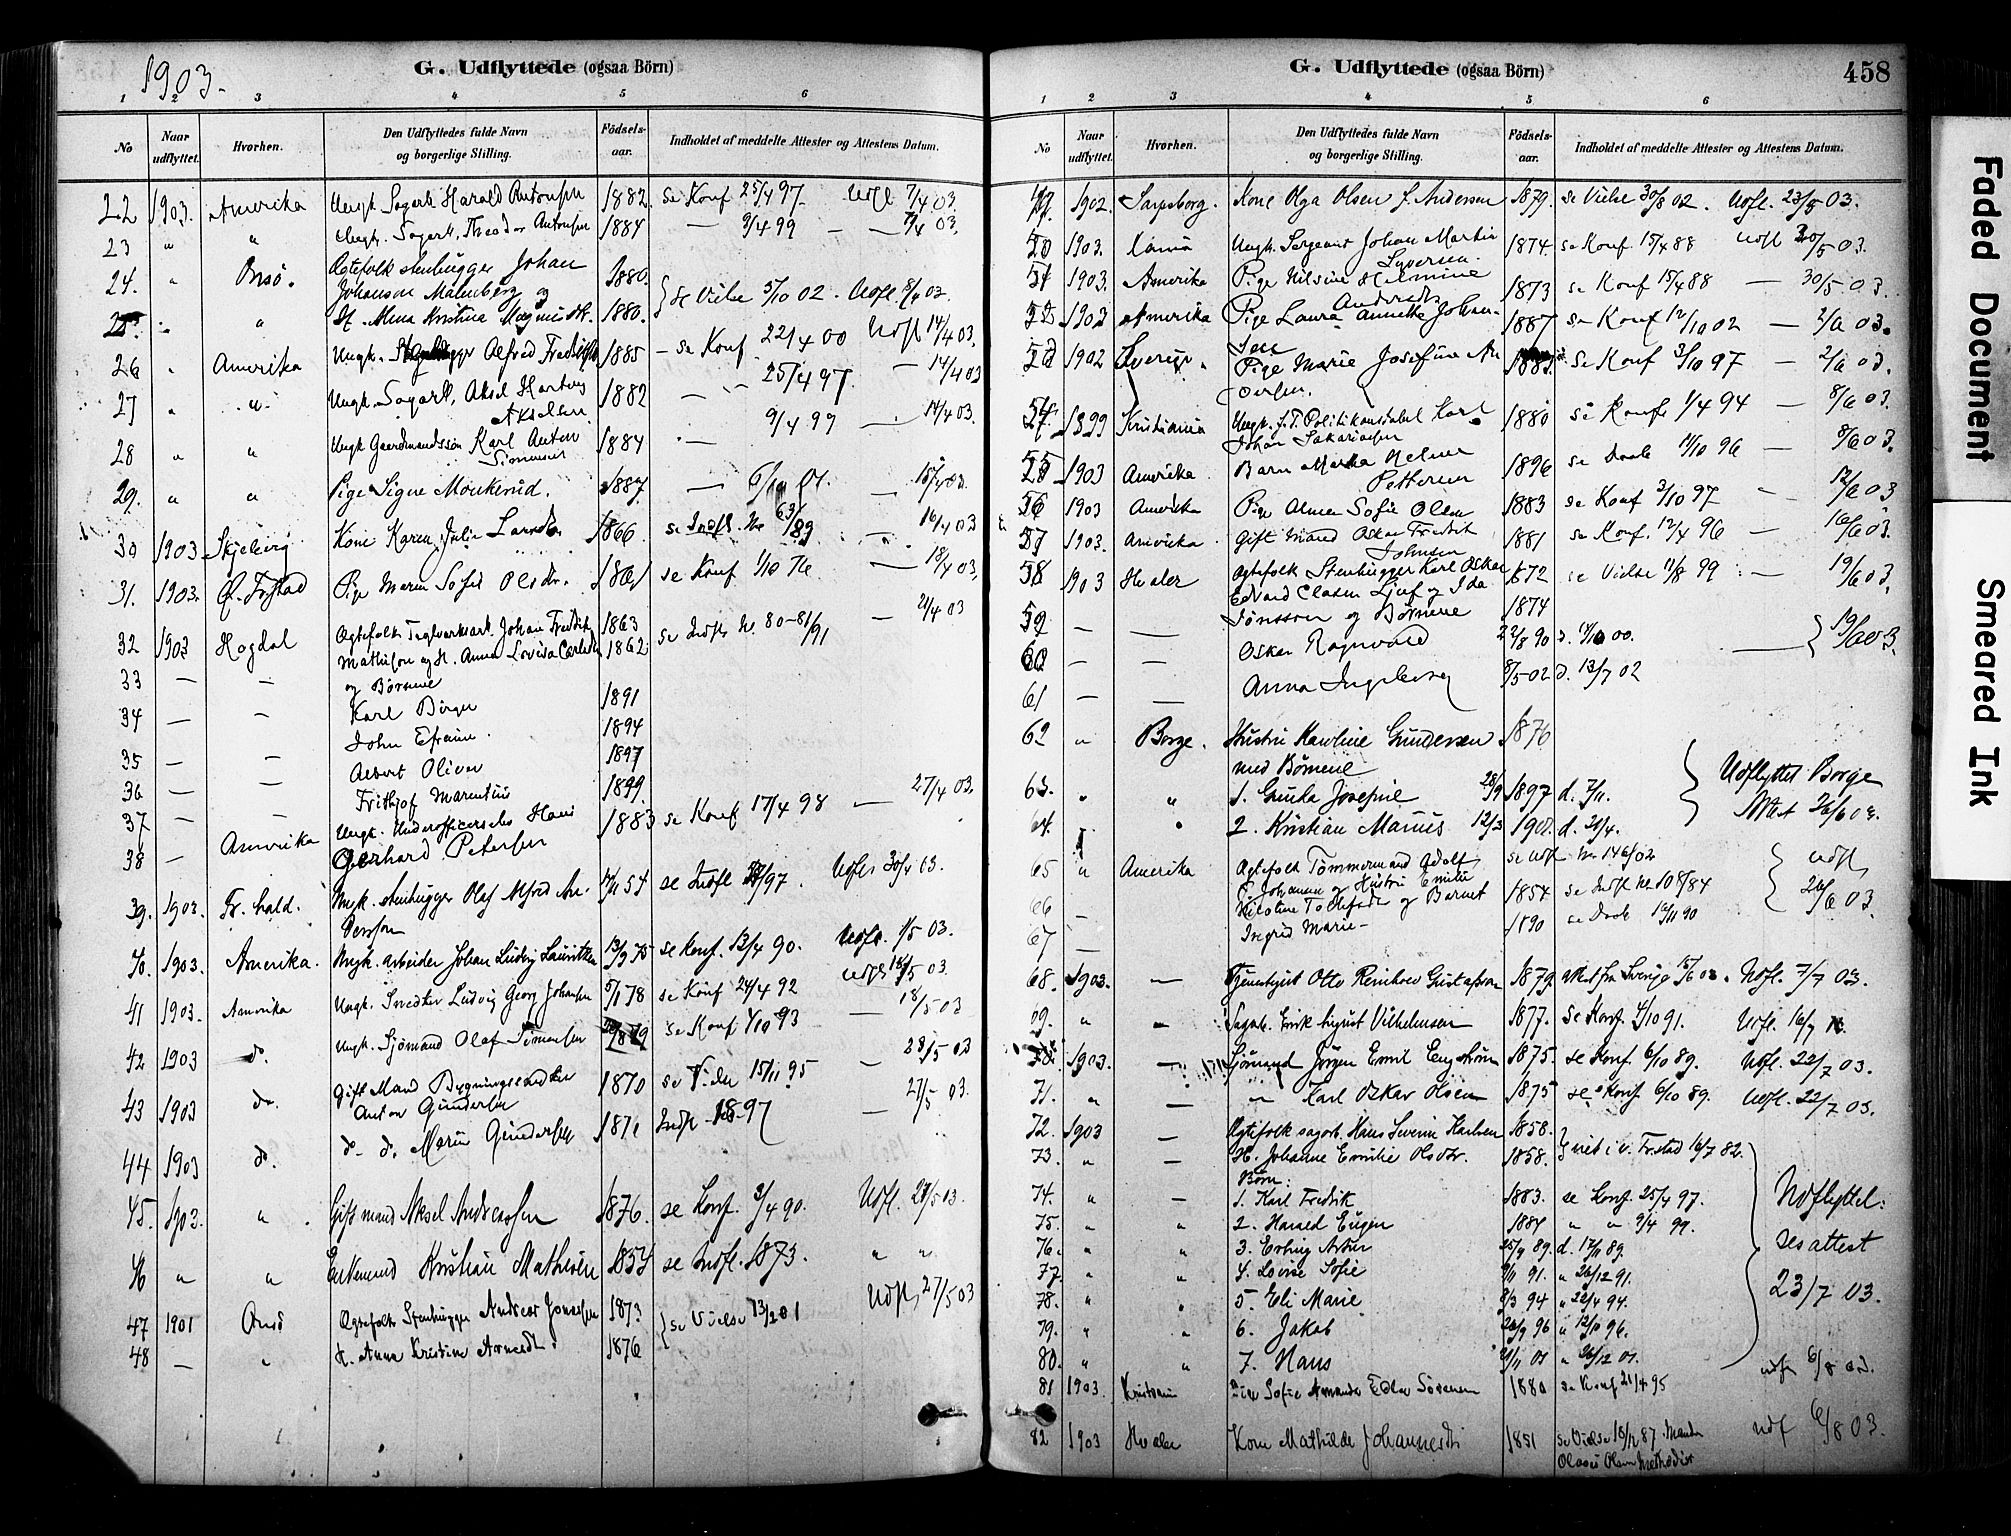 1903.
G. Udflyttede (ogsaa Börn)
1 2 3 4 5 6
No
Naar udflyttet.
Hvorhen.
Den Udflyttedes fulde Navn og borgerlige Stilling.
Födsels-aar.
Indholdet af meddelte Attester og Attestens Datum.
22 1903. Amerika Ungk. Sagarb. Harald Antonsen 1882. se Konf 25/4 97 Udfl 7/4 03.
23 " " Ungk. Sagarb. Theodor Antonsen 1884 — 9/4 99 — — 7/4 03.
24. " Onsö. Ægtefolk stenhugger Johan 1880.
Johanson Malmberg og } se Vielse 5/10 02. Udfl. 8/4 03.
25. " " H. Mina Kristine Magnisdtr. 1880.
26 " Amerika Ungk. Alfred Fredriksen 1885 — se Konf 22/4 00 Udfl 14/4 03.
27 " " Ungk. Sagarb. Aksel Hartvig 1882 — 25/4 97 — 14/4 03
Akselsen
28 " " Ungk Gaardmandssön Karl Anton 1884 — 9/4 99 — 14/4 03.
Simensen
29. " " Pige Signe Monkerud. 1887 — 6/10 01. — 15/4 03.
30 1903 Skjeberg Kone Karen Julie Larsdtr 1866 se Indfl. No 63/89 — 16/4 03
31. 1903. Ø. Frstad Pige Maren Sofie Olsdtr. 1861 se Konf 1/10 76 — 18/4 03.
32 1903 Hogdal Ægtefolk Teglverksarb. Johan Fredrik 1863 se Indfl. No. 80-81/91 — 21/4 03
Mathisen og H. Anna Lovisa Carlsdtr 1862
33 — — og Börnene
34 — — Karl Birger 1891
35 — — John Efraim. 1894
36 — — Albert Oliver 1897
37 — — Frithjof Marentius 1899.
38 — Amerika Ungk. Underofficerselev Hans 1883 se Konf 17/4 98 — 27/4 03.
Gerhard Petersen
39. 1903. Fr.hald. Ungk. stenhugger Olaf Alfred An- 54 se Indfl /97. Udfl. 30/4 03.
Persson
40. 1903. Amerika. Ungk. Arbeider Johan Ludvig Lauritsen 13/9 75 se Konf. 13/4 90. Udfl. 1/5 03.
41 1903. Amerika Ungk. Snedker Ludvig Georg Johansen 5/1 78 se Konf 24/4 92 Udfl 18/5 03
42 1903 do. Ungk. Sjömand Olaf Simensen 1879 se Konf 1/10 93 — 18/5 03
43 1903 do. Gift Mand Bygningssnedker 1870 se Viede 15/11 95 — 28/5 03
Anton Gundersen
44 1903 do. d. d. Marie Gundersen 1871 Indfl 1897 — 27/5 03.
45. 1903. " Gift mand Aksel Andreassen 1876. se Konf. 3/4 90. Udfl. 27/5 03.
46 " " Enkemand Kristian Mathisen 1854 se Indfl. 1873. " "
47 1901 Onsö Ægtefolk Stenhugger Andreas Jonassen 1873. } se Vielse 13/2 01 Udfl, 27/5 03
48 — " H. Anna Kristine Arnesdtr. 1876
G. Udflyttede (ogsaa Börn)
458
1 2 3 4 5 6
No
Naar udflyttet.
Hvorhen.
Den Udflyttedes fulde Navn og borgerlige Stilling.
Födsels-aar.
Indholdet af meddelte Attester og Attestens Datum.
49. 1902. Sarpsborg. Kone Olga Olsen f. Andersen 1879. se Vielse 30/8 02. Udfl. 23/5 03.
50 1903. Ungk. Sergeant Johan Martin 1874. se Konf. 15/4 88 Udfl 30/5 03.
Syversen
51 1903. Amerika Pige Nilsine Helmine 1873 se Konf 15/4 88 — 30/5 03.
Andersdtr
52 1903 Amerika Pige Laura Annette Johan- 1887 se Konf 12/10 02 — 2/6 03.
sen
53 1902 Sverige. Pige Marie Josefine An 1883. se Konf 3/10 97 — 2/6 03.
dersen.
54 1899 Kristiania Ungk. f.T. Politikonstabel Karl 1880 se Konf 1/4 94 — 8/6 03.
Johan Sakariasen
55 1903 Amerika Barn Martha Helene 1896 se Daab 11/10 96 — 8/6 03.
Pettersen
56 1903 Amerika Pige Alma Sofie Olsen 1883 se Konf 3/10 97 — 12/6 03
57 1903. Amerika Gift Mand Oskar Fredrik 1881 se Konf. 12/4 96 — 16/6 03.
Johnsen
58 1903 Hvaler Ægtefolk Stenhugger Karl Oskar 1872 se Vielse 11/8 99 — 19/6 03.
Edvard Clasen Ljuf og Ida
59 — — Jönsson og Börnene 1874
60 — — Oskar Ragnvald 22/8 90 d. 14/10 00. — } 19/6 03.
61 — — Anna Ingeborg 8/5 02 d. 13/7 02
62 " Borge. Hustru Karoline Gundersen 1876
med Börnene
63. " " 1. Gunda Josefine 28/9 1897 d. 7/11. } Udflyttet Borge
64. " " 2. Kristian Marius 12/3 1901. d. 21/4. Attest 26/6 03.
65 " Amerika Ægtefolk Tömmermand Adolf se udfl No 146/02 } udfl
E. Johansen og Hustru Emilie
66 — Nicoline Tollefsdtr og Barnet 1854 se Indfl No 108/84 26/6 03.
67 — Ingrid Marie — 1890 se Daab 16/11 90
68. 1903. — Tjenestgut Otto Reinhold Gustafsson 1879. Attest fra Sverige 15/6 03. Udfl. 7/7 03.
69. " — Sagarb. Erik August Vilhelmsen 1877. se Konf. 4/10 91. Udfl. 16/7 03.
70. 1903. — Sjömand Jörgen Emil Engström 1875 se Konf. 6/10 89. Udfl. 22/7 03.
71. " — " Karl Oskar Olsen 1875 se Konf. 6/10 89. Udfl. 22/7 03.
72. 1903 — Ægtefolk sagarb. Hans Severin Karlsen 1858. } viet i v. Fr.stad 16/7 82.
73. " — H. Johanne Emilie Olsdtr. 1858.
Börn:
74. " — 1. Karl Fredrik 1883. se Konf. 25/4 97. Udflyttel:
75. " " 2. Harald Eugen 1884 " " 9/4 99.
76. " " 3. Erling Artur 25/9 89. d. 17/11 89. sesattest
77. " " 4. Lovise Sofie 9/11 91. " 26/12 91.
78. " " 5. Eli Marie 2/3 94 " 22/4 94. 23/7 03.
79. " " 6. Jakob 26/9 96 " 12/10 96.
80. " " 7. Hans 21/11 01 " 26/12 01.
81 1903. Kristiania Pige Sofie Amanda Edler Sörensen 1880 se Konf 21/4 95 udfl 6/8 03.
82 1903 Hvaler Kone Mathilde Johannesdtr 1851 se Vielse 18/12 87 Manden udf 6/8 03.
Olaves Olsen Methodist
Faded Document
Smeared Ink